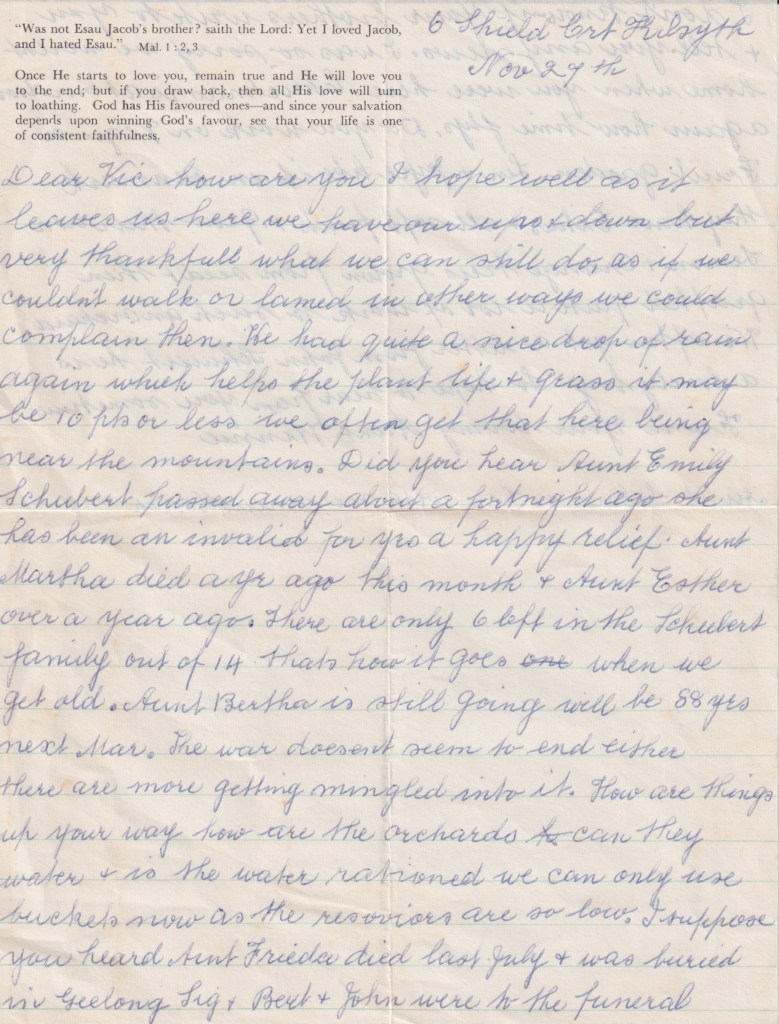 "Was not Esau Jacob's brother? saith the Lord: Yet I loved Jacob,
and I hated Esau." Mal. 1 : 2, 3
Once He starts to love you, remain true and He will love you
to the end; but if you draw back, then all His love will turn
to loathing. God has His favoured ones—and since your salvation
depends upon winning God's favour, see that your life is one
of consistent faithfulness.
6 Shield Crt Kilsyth
Nov 27th
Dear Vic how are you I hope well as it
leaves us here we have our ups & down but
very thankfull what we can still do, as if we
couldn't walk or lamed in other ways we could
complain then. We had quite a nice drop of rain
again which helps the plant life & grass it may
be 10 pts or less we often get that here being
near the mountains. Did you hear Aunt Emily
Schubert passed away about a fortnight ago she
has been an invalid for yrs a happy relief. Aunt
Martha died a yr ago this month & Aunt Esther
over a year ago. There are only 6 left in the Schubert
family out of 14 thats how it goes one when we
get old. Aunt Bertha is still going will be 88 yrs
next Mar. The war doesent seem to end either
there are more getting mingled into it. How are things
up your way how are the orchards can they
water & is the water rationed we can only use
buckets now as the resoviors are so low. I suppose
you heard Aunt Frieda died last July & was buried
in Geelong Sig & Bert & John were to the funeral